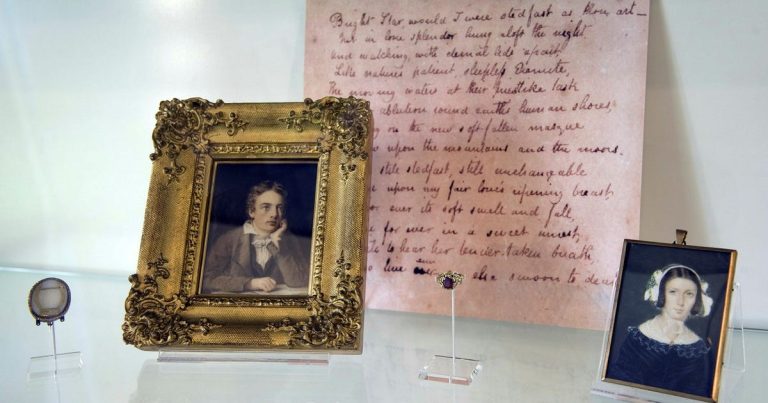 Bright Star would I were stedfast as thou art —
Not in lone splendor hung aloft the night
and watching, with eternal lids apart,
Like natures patient, sleepless Eremite,
The moving waters at their priestlike task
ablution round earths human shores,
on the new soft-fallen masque
upon the mountains and the moors.
stedfast, still unchangeable
upon my fair love's ripening breast
for ever its soft swell and fall,
for ever in a sweet unrest,
to hear her tender-taken breath,
live ever else swoon to